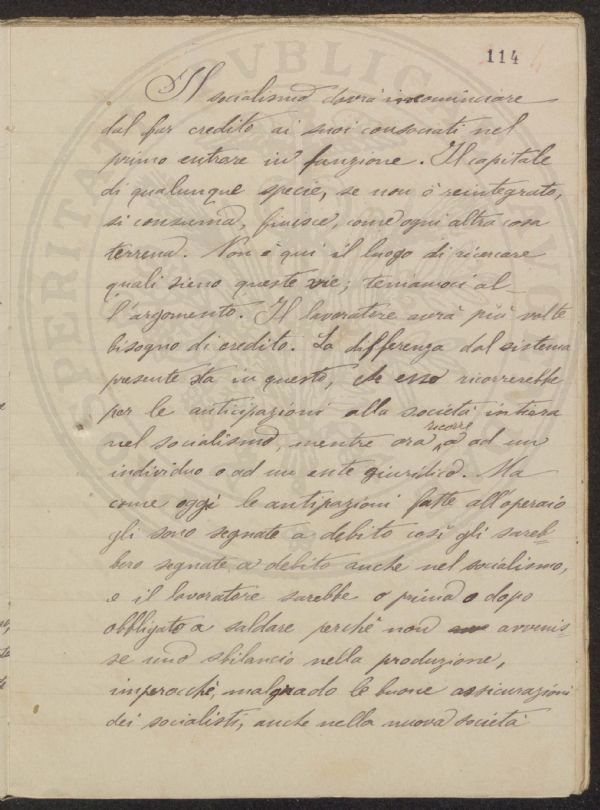 114
Il socialismo dovrà incominciare
dal far credito ai suoi consociati nel
primo entrare in funzione. Il capitale
di qualunque specie, se non è reintegrato,
si consuma, finisce, come ogni altra cosa
terrena. Non è qui il luogo di ricercare
quali sieno queste vie; teniamoci al
l'argomento. Il lavoratore avrà più volte
bisogno di credito. La differenza dal sistema
presente sta in questo, che esso ricorrerebbe
per le anticipazioni alla società intiera
ricorre
nel socialismo, mentre ora a ad un
individuo o ad un ente giuridico. Ma
come oggi le antipazioni fatte all'operaio
gli sono segnate a debito così gli sareb=
bero segnate a debito anche nel socialismo,
e il lavoratore sarebbe o prima o dopo
obbligato a saldare perchè non avvenis=
se uno sbilancio nella produzione,
imperocchè, malgrado le buone assicurazioni
dei socialisti, anche nella nuova società